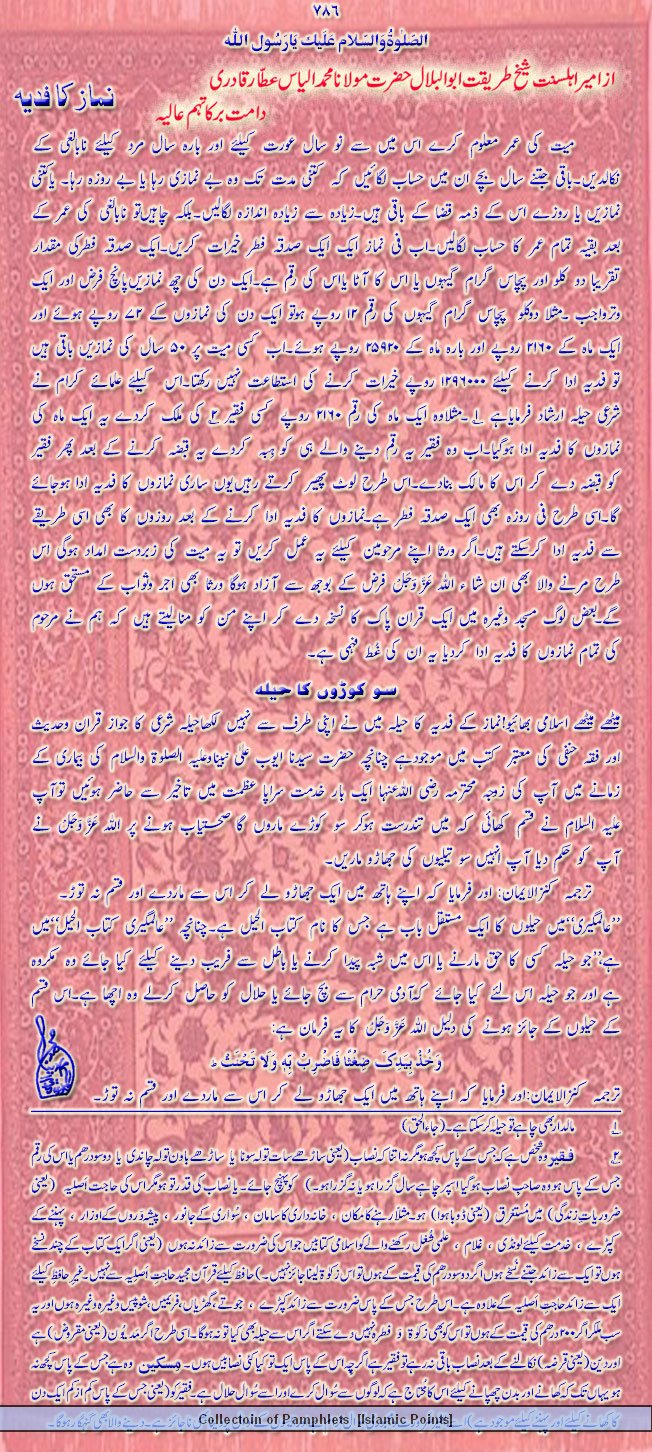 ۷۸۶
الصَّلٰوۃُ وَالسَّلَام عَلَیْكَ یَارَسُول اللّٰه
از امیر اہلسنت شیخ طریقت ابوالبلال حضرت مولانا محمد الیاس عطّار قادری
دامت برکاتہم عالیہ
نماز کا فدیہ
میت کی عمر معلوم کرے اس میں سے نو سال عورت کیلئے اور بارہ سال مرد کیلئے نابالغی کے
نکالدیں۔باقی جتنے سال بچے ان میں حساب لگائیں کہ کتنی مدت تک وہ بے نمازی رہا یا بے روزہ رہا۔ یا کتنی
نمازیں یا روزے اس کے ذمہ قضا کے باقی ہیں۔زیادہ سے زیادہ اندازہ لگالیں۔بلکہ چاہیں تو نابالغی کی عمر کے
بعد بقیہ تمام عمر کا حساب لگالیں۔اب فی نماز ایک ایک صدقہ فطر خیرات کریں۔ایک صدقہ فطر کی مقدار
تقریبا دو کلو اور پچاس گرام گیہوں یا اس کا آٹا یا اس کی رقم ہے۔ایک دن کی چھ نمازیں پانچ فرض اور ایک
وتر واجب ۔مثلا دو کلو پچاس گرام گیہوں کی رقم ۱۲ روپے ہو تو ایک دن کی نمازوں کے ۷۲ روپے ہوئے اور
ایک ماہ کے ۲۱۶۰ روپے اور بارہ ماہ کے ۲۵۹۲۰ روپے ہوئے۔اب کسی میت پر ۵۰ سال کی نمازیں باقی ہیں
تو فدیہ ادا کرنے کیلئے ۱۲۹۶۰۰۰ روپے خیرات کرنے کی استطاعت نہیں رکھتا۔اس کیلئے علمائے کرام نے
شرعی حیلہ ارشاد فرمایا ہے ۱۔مثلا وہ ایک ماہ کی رقم ۲۱۶۰ روپے کسی فقیر ۲ کی ملک کردے یہ ایک ماہ کی
نمازوں کا فدیہ ادا ہوگیا۔اب وہ فقیر یہ رقم دینے والے ہی کو ہبہ کردے یہ قبضہ کرنے کے بعد پھر فقیر
کو قبضہ دے کر اس کا مالک بنادے۔اس طرح لوٹ پھیر کرتے رہیں یوں ساری نمازوں کا فدیہ ادا ہوجائے
گا۔اسی طرح فی روزہ بھی ایک صدقہ فطر ہے۔نمازوں کا فدیہ ادا کرنے کے بعد روزوں کا بھی اسی طریقے
سے فدیہ ادا کرسکتے ہیں۔اگر ورثا اپنے مرحومین کیلئے یہ عمل کریں تو یہ میت کی زبردست امداد ہوگی اس
طرح مرنے والا بھی ان شاء اللہ عَزَّ وَجَلَّ فرض کے بوجھ سے آزاد ہوگا ورثا بھی اجر وثواب کے مستحق ہوں
گے۔بعض لوگ مسجد وغیرہ میں ایک قران پاک کا نسخہ دے کر اپنے من کو منالیتے ہیں کہ ہم نے مرحوم
کی تمام نمازوں کا فدیہ ادا کردیا یہ ان کی غلط فہمی ہے۔
سو کوڑوں کا حیلہ
میٹھے میٹھے اسلامی بھائیو!نماز کے فدیہ کا حیلہ میں نے اپنی طرف سے نہیں لکھا حیلہ شرعی کا جواز قران وحدیث
اور فقہ حنفی کی معتبر کتب میں موجود ہے چنانچہ حضرت سیدنا ایوب علیٰ نبینا وعلیہ الصلوۃ والسلام کی بیماری کے
زمانے میں آپ کی زوجہ محترمہ رضی اللہ عنہا ایک بار خدمت سراپا عظمت میں تاخیر سے حاضر ہوئیں تو آپ
علیہ السلام نے قسم کھائی کہ میں تندرست ہوکر سو کوڑے ماروں گا صحتیاب ہونے پر اللہ عَزَّ وَجَلَّ نے
آپ کو حکم دیا آپ انہیں سو تیلیوں کی جھاڑو ماریں۔
ترجمہ کنزالایمان: اور فرمایا کہ اپنے ہاتھ میں ایک جھاڑو لے کر اس سے ماردے اور قسم نہ توڑ۔
’’عالمگیری‘‘میں حیلوں کا ایک مستقل باب ہے جس کا نام کتاب الحیل ہے۔چنانچہ ’’عالمگیری کتاب الحیل‘‘میں
ہے،’’جو حیلہ کسی کا حق مارنے یا اس میں شبہ پیدا کرنے یا باطل سے فریب دینے کیلئے کیا جائے وہ مکروہ
ہے اور جو حیلہ اس لئے کیا جائے کہ آدمی حرام سے بچ جائے یا حلال کو حاصل کرلے وہ اچھا ہے۔اس قسم
کے حیلوں کے جائز ہونے کی دلیل اللہ عَزَّ وَجَلَّ کا یہ فرمان ہے:
وَخُذْ بِیَدِكَ ضِغْثًا فَاضْرِبْ بِّهٖ وَلَا تَحْنَثْ ط
ترجمہ کنزالایمان:اور فرمایا کہ اپنے ہاتھ میں ایک جھاڑو لے کر اس سے ماردے اور قسم نہ توڑ۔
۱ مالدار بھی چاہے تو حیلہ کرسکتا ہے۔(جاء الحق)
۲ فقیر وہ شخص ہے کہ جس کے پاس کچھ ہو مگر نہ اتنا کہ نصاب (یعنی ساڑھے سات تولہ سونا یا ساڑھے باون تولہ چاندی یا دو سو درھم یا اس کی رقم
جس کے پاس ہو وہ صاحب نصاب ہوگیا اسپر چاہے سال گزرا ہو یا نہ گزرا ہو۔) کو پہنچ جائے۔یا نصاب کی قدر تو ہو مگر اس کی حاجت اَصلیہ (یعنی
ضروریاتِ زندگی) میں مُستغرق (یعنی ڈوبا ہوا) ہو۔مثلا رہنے کا مکان ، خانہ داری کا سامان ، سُواری کے جانور ، پیشہ وروں کے اوزار ، پہننے کے
کپڑے ، خدمت کیلئے لونڈی ، غلام ، علمی شُغل رکھنے والے کو اسلامی کتابیں جو اس کی ضرورت سے زائد نہ ہوں (یعنی اگر ایک کتاب کے چند نسخے
ہوں تو ایک سے زائد جتنے نسخے ہوں اگر دو سو درھم کی قیمت کے ہوں تو اس زکوۃ لینا جائز نہیں۔) حافظ کیلئے قرآن مجید حاجت اَصلیہ سے نہیں۔غیر حافظ کیلئے
ایک سے زائد حاجت اَصلیہ کے علاوہ ہے۔اس طرح جس کے پاس ضرورت سے زائد کپڑے ، جوتے ، گھڑیاں، فریمیں، شوپیس وغیرہ وغیرہ ہوں اور یہ
سب ملکر اگر ۲۰۰ درھم کی قیمت کے ہوں تو اس کو بھی زکوۃ و فطرہ نہیں دے سکتے اگر اس سے حیلہ بھی کیا تو نہ ہوگا۔اسی طرح اگر مَدیُون (یعنی مقروض) ہے
اور دَین (یعنی قرضہ) نکالنے کے بعد نصاب باقی نہ رہے تو فقیر ہے اگرچہ اس کے پاس ایک تو کیا کئی نصابیں ہوں۔ مسکین وہ ہے جس کے پاس کچھ نہ
ہو یہاں تک کہ کھانے اور بدن چھپانے کیلئے اس کا مُحتاج ہے کہ لوگوں سے سُوال کرے اور اسے سُوال حلال ہے۔فقیر کو (یعنی جس کے پاس کم از کم ایک دن
کا کھانے کیلئے اور پہننے کیلئے موجود ہے)
Collectoin of Pamphlets [Islamic Points]